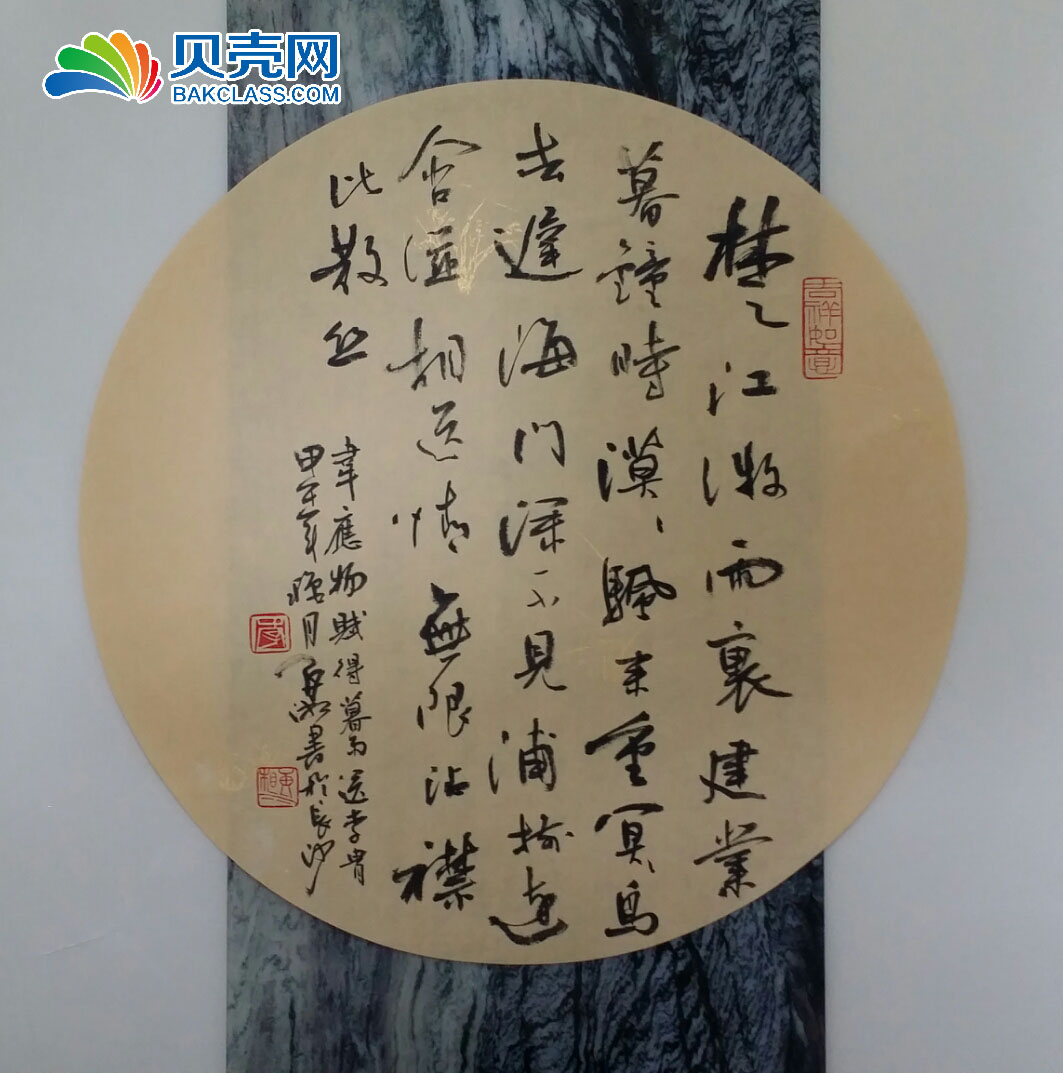 贝壳网
BAKCLASS.COM
吉祥如意
楚江微雨裏建業
暮鐘時漠〻颿來重冥〻鳥
去遲海門深不見浦樹遠
含滋相送情無限沾襟
比散丝
韋應物賦得暮雨送李胄
甲午年臘月書於長沙